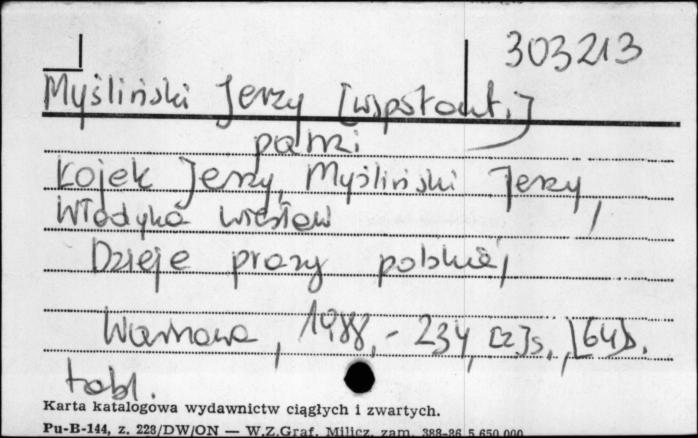 303213
Myśliński Jerzy [współaut.]
patrz:
Łojek Jerzy, Myśliński Jerzy,
Władyka Wiesław
Dzieje prasy polskiej,
Warszawa, 1988, - 234, [2]s., [64]s.
tabl.
Karta katalogowa wydawnictw ciągłych i zwartych.
Pu-B-144, z. 228/DW/ON — W.Z.Graf. Milicz, zam. 388-86 5.650.000